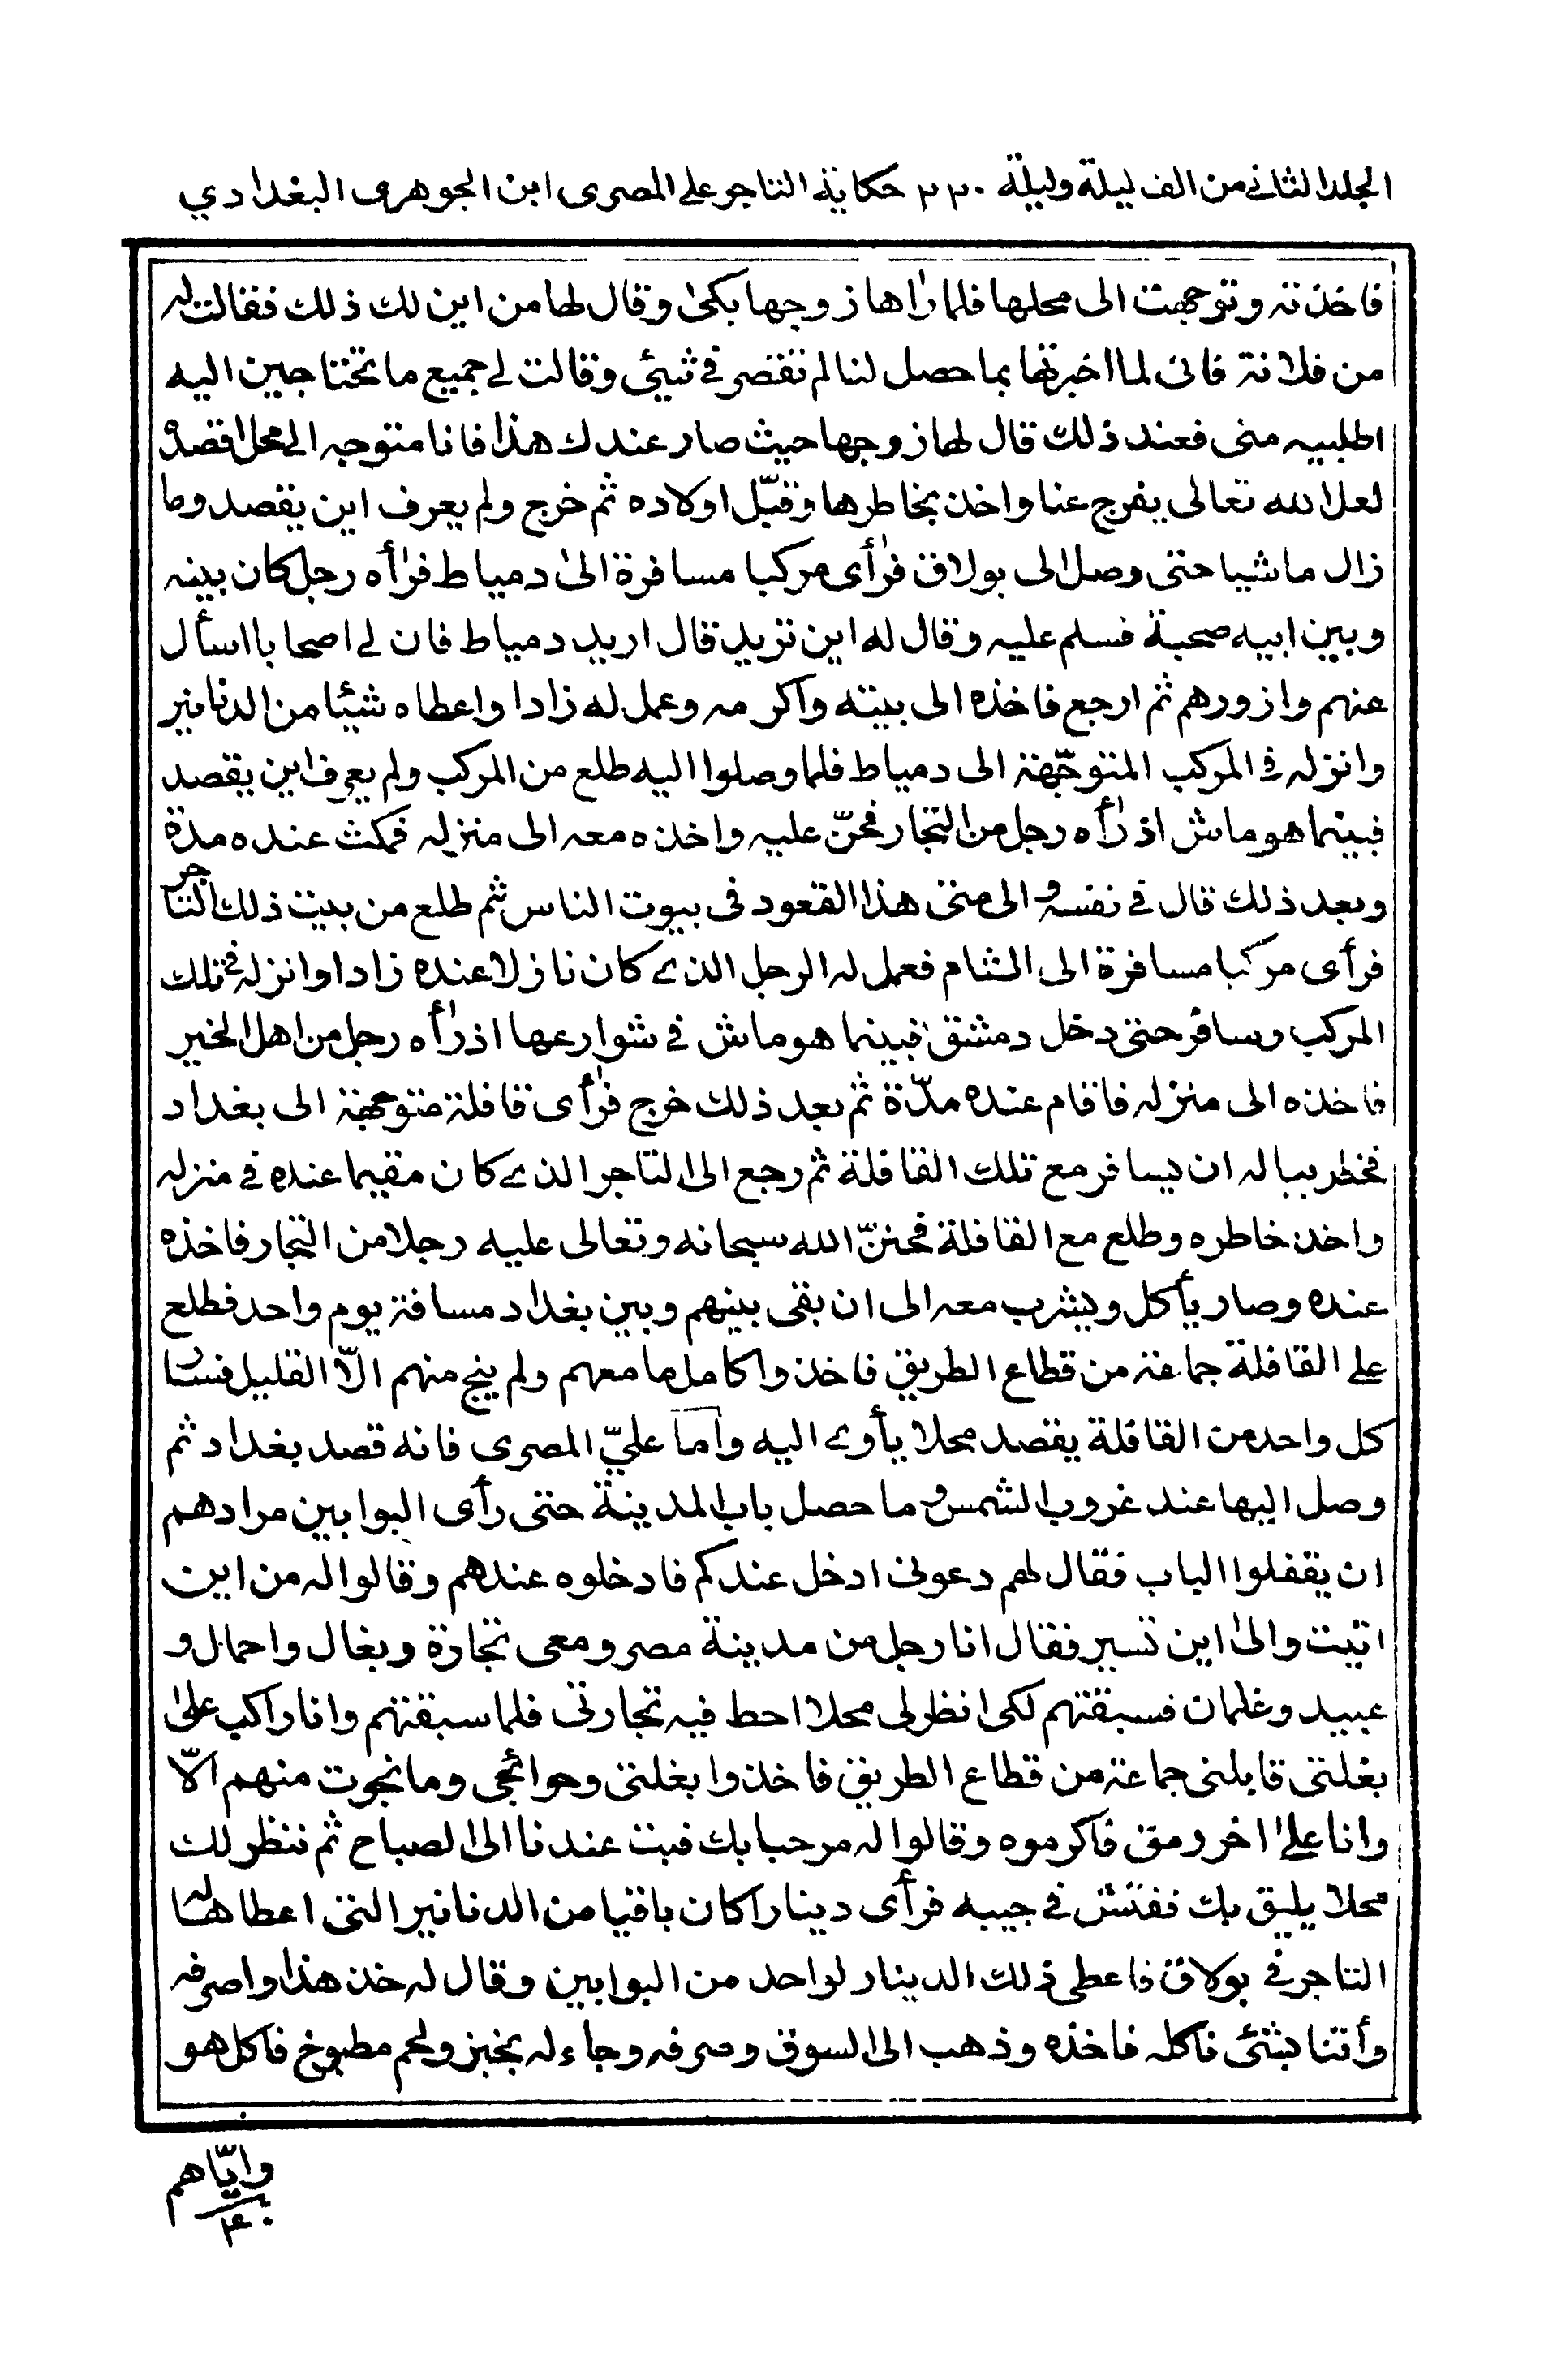 المجلد الثاني من الف ليلة وليلة ٢٣٠ حكاية التاجر علي المصرى ابن الجوهرى البغدادي
فاخذته وتوجهت الى محلها فلما رأها زوجها بكى وقال لها من اين لك ذلك فقالت له
من فلانة فانى لما اخبرتها بما حصل لنا لم تقصر في شيئى وقالت لي جميع ما تحتاجين اليه
اطلبيه منى فعند ذلك قال لها زوجها حيث صار عندك هذا فانا متوجه الى محل اقصده
لعل الله تعالى يفرج عنا واخذ بخاطرها وقبّل اولاده ثم خرج ولم يعرف اين يقصد وما
زال ماشيا حتى وصل الى بولاق فرأى مركبا مسافرة الى دمياط فرأه رجل كان بينه
وبين ابيه صحبة فسلم عليه وقال له اين تريد قال اريد دمياط فان لي اصحابا اسأل
عنهم وازورهم ثم ارجع فاخذه الى بيته واكرمه وعمل له زادا واعطاه شيئا من الدنانير
وانزله في المركب المتوجّهة الى دمياط فلما وصلوا اليه طلع من المركب ولم يعرف اين يقصد
فبينما هو ماش اذ رأه رجل من التجار فحنّ عليه واخذه معه الى منزله فمكث عنده مدة
وبعد ذلك قال في نفسه و الى متى هذا القعود فى بيوت الناس ثم طلع من بيت ذلك التاجر
فرأى مركبا مسافرة الى الشام فعمل له الرجل الذي كان نازلا عنده زادا وانزله في تلك
المركب وسافر حتى دخل دمشق فبينما هو ماش في شوارعها اذ رأه رجل من اهل الخير
فاخذه الى منزله فاقام عنده مدّة ثم بعد ذلك خرج فرأى قافلة متوجهة الى بغداد
فخطر بباله ان يسافر مع تلك القافلة ثم رجع الى التاجر الذي كان مقيما عنده في منزله
واخذ خاطره وطلع مع القافلة فحننّ الله سبحانه وتعالى عليه رجلا من التجار فاخذه
عنده وصار يأكل ويشرب معه الى ان بقى بينهم وبين بغداد مسافة يوم واحد فطلع
على القافلة جماعة من قطاع الطريق فاخذوا كامل ما معهم ولم ينج منهم الّا القليل فسار
كل واحد من القافلة يقصد محلا يأوي اليه واما عليّ المصرى فانه قصد بغداد ثم
وصل اليها عند غروب الشمس و ما حصل باب المدينة حتى رأى البوابين مرادهم
ان يقفلوا الباب فقال لهم دعونى ادخل عندكم فادخلوه عندهم وقالوا له من اين
اتيت والى اين تسير فقال انا رجل من مدينة مصر ومعى تجارة وبغال واحمال و
عبيد وغلمان فسبقتهم لكى انظر لى محلا احط فيه تجارتى فلما سبقتهم وانا راكب على
بغلتى قابلنى جماعة من قطاع الطريق فاخذوا بغلتى وحوائجى وما نجوت منهم الّا
وانا على اخر رمق فاكرموه وقالوا له مرحبا بك فبت عندنا الى الصباح ثم ننظر لك
محلا يليق بك ففتش في جيبه فرأى دينارا كان باقيا من الدنانير التى اعطاها له
التاجر في بولاق فاعطى ذلك الدينار لواحد من البوابين وقال له خذ هذا واصرفه
وأتنا بشئى ناكله فاخذه وذهب الى السوق وصرفه وجاء له بخبز ولحم مطبوخ فاكل هو
وايّاهم